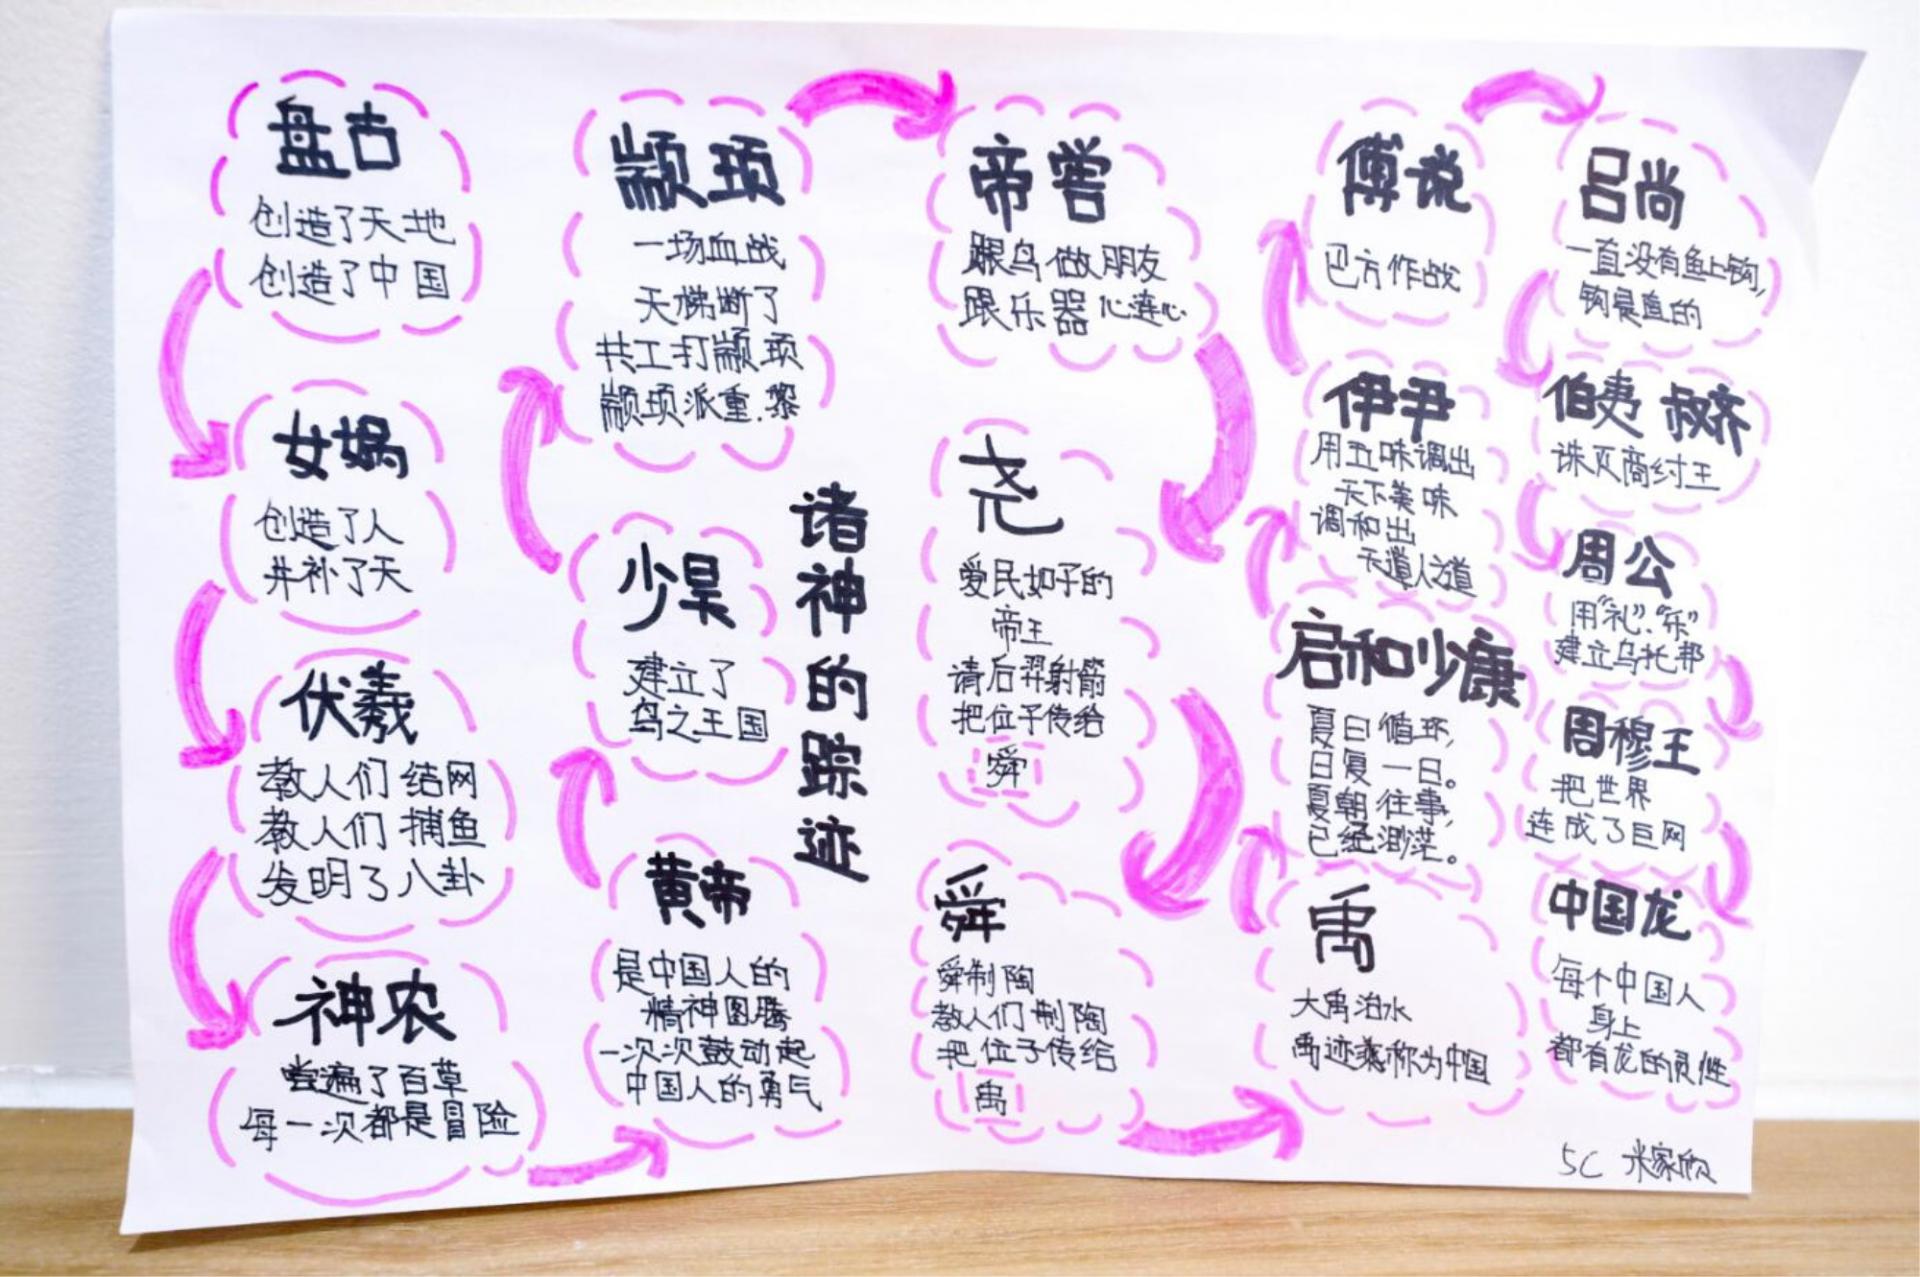 诸神的踪迹
盘古
创造了天地
创造了中国
女娲
创造了人
并补了天
伏羲
教人们结网
教人们捕鱼
发明了八卦
神农
尝遍了百草
每一次都是冒险
黄帝
是中国人的
精神图腾
一次次鼓动起
中国人的勇气
少昊
建立了
鸟之王国
颛顼
一场血战
天梯断了
共工打颛顼
颛顼派重.黎
帝喾
跟鸟做朋友
跟乐器心连心
尧
爱民如子的
帝王
请后羿射箭
把位子传给
舜
舜
舜制陶
教人们制陶
把位子传给
禹
禹
大禹治水
禹迹被称为中国
启和少康
夏日循环,
日复一日。
夏朝往事,
已经渺茫。
伊尹
用五味调出
天下美味
调和出
天道人道
傅说
巴方作战
吕尚
一直没有鱼上钩,
钩是直的
伯夷 叔齐
诛灭商纣王
周公
用“礼”.“乐”
建立乌托邦
周穆王
把世界
连成了巨网
中国龙
每个中国人
身上
都有龙的灵性
5C 米家欣